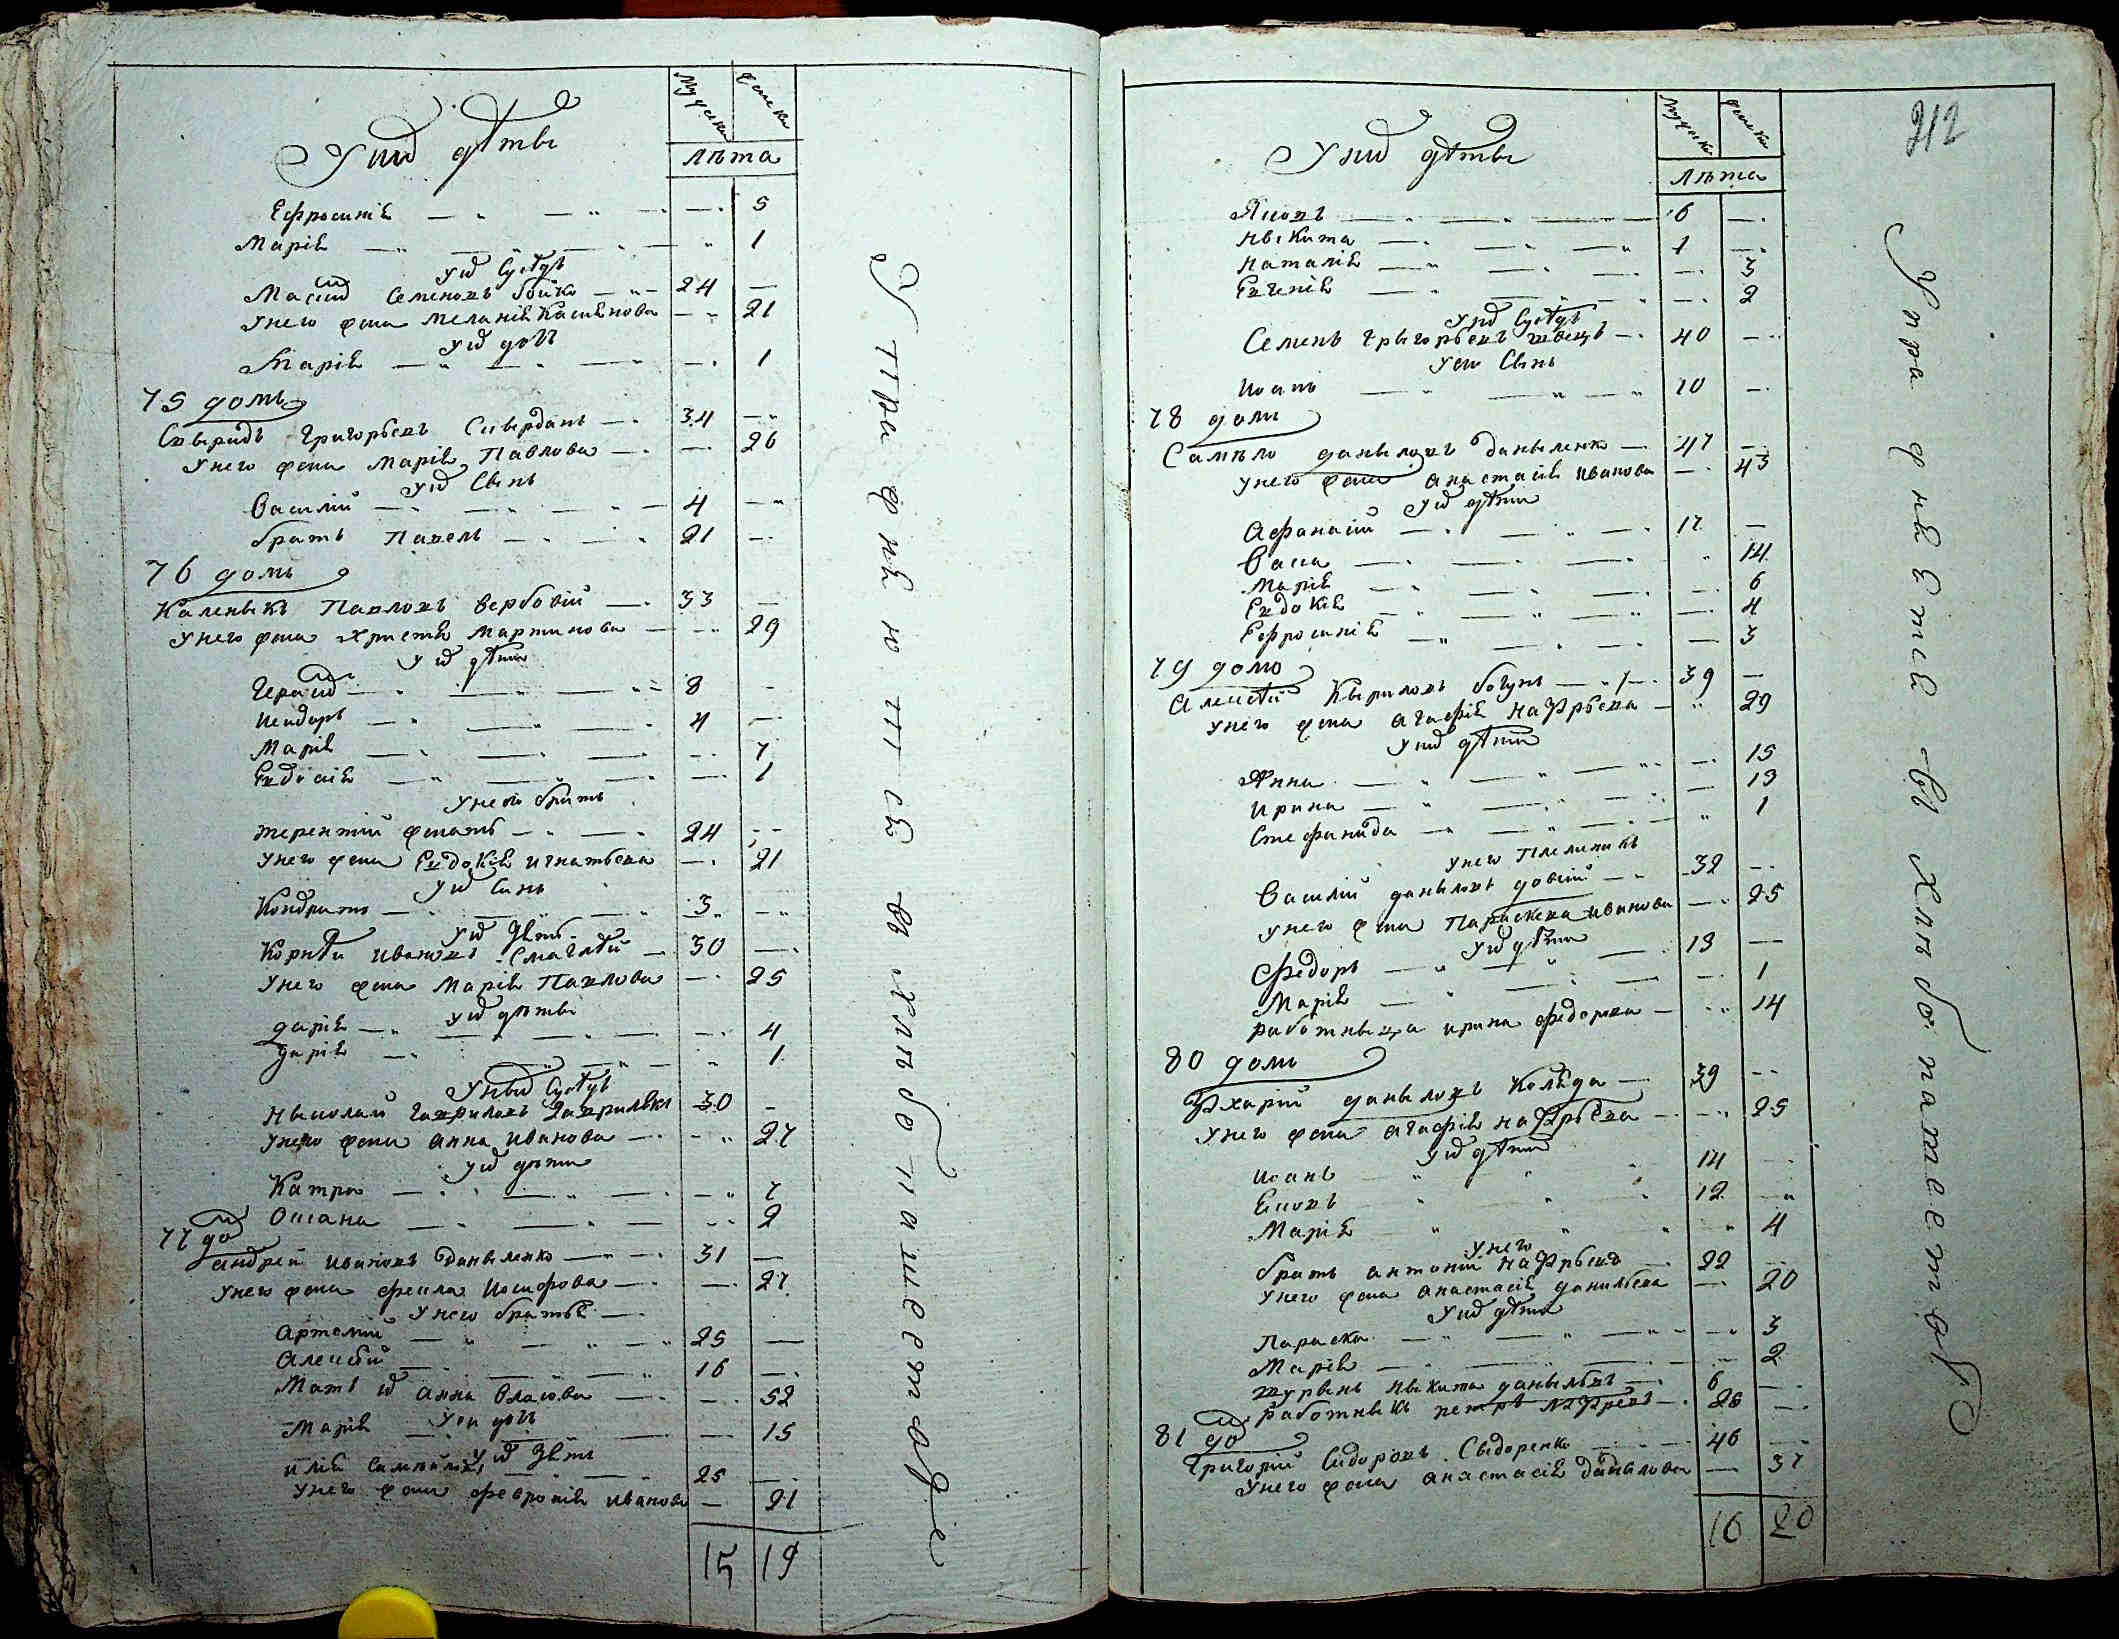 У них дѣты
Мужска Женска
Лѣта
Ефросинія 5
Марія 1
У них Сусѣдъ
Максим Семеновъ бойко 24
У него жена Меланія Касянова 21
У их дочь
Марія 1
75 домъ
Свыридъ Григорьевъ 34
У него жена Марія Павлова 26
У их Сынъ
Василій 4
братъ Павелъ 21
76 домъ
Каленыкъ Павловъ Вербовій 33
У него жена Христя Мартинова 29
У их дѣти
Герасим 8
Исидоръ 4
Марія 7
Евдокія 1
У него братъ
Терентій женатъ 24
У него жена Евдокія Игнатьева 21
У их Синъ
Кондратъ 3
У их Зять
Корнѣй Ивановъ 30
У него жена Марія Павлова 25
У их дѣты
Дарія 4
Дарія 1
У них Сусѣдъ
Ныколай Гавриловъ 30
У него жена Анна Иванова 27
У их дѣти
Катря 7
Оксана 2
77 до
Андрей Ивановъ Даныленко 31
У него жена Фекла Иосифова 27
У него братья
Артемій 25
Алексѣй 16
Мать их Анна Власова 52
У ей дочь
Марія 15
У их Зять
Илія Самойловъ 25
У него жена Февронія Иванова 21
15 19
У пражняются въ хлѣбопашествѣ
212
У них дѣты
Мужска Женска
Лѣта
Яковъ 6
Ныкита 1
Наталія 3
Евгенія 2
У них Сусѣдъ
Семенъ Григорьевъ швецъ 40
У его Сынъ
Иоанъ 10
78 домъ
Самъло Даныловъ Даныленко 47
У него жена Анастасія Иванова 43
У их дѣти
Афанасій 17
Васса 14
Марія 6
Евдокія 4
Ефросинія 3
79 домъ
Алексѣй Кыриловъ богунъ 39
У него жена Агафія Назарьева 29
У них дѣти
Анна 15
Ирина 13
Стефанида 1
У него Племникъ
Василій Даныловъ 32
У него жена Параскева Иванова 25
У их дѣти
Федоръ 13
Марія 1
работныца Ирина Федорова 14
80 домъ
Захарій Даныловъ Коляда 39
У него жена Агафія Назарьева 25
У их дѣти
Иоанъ 14
Яковъ 12
Марія 4
У него
братъ Антоній Назарьевъ 22
У него жена Анастасія Данильева 20
У них дѣти
Параска 3
Марія 2
шурынъ Ныкита Даныловъ 6
работныкъ Петръ 26
81 до
Григорій Сидоровъ Сыдоренко 46
У него жена Анастасія Данилова 37
16 20
Упражняется въ хлѣбопашествѣ